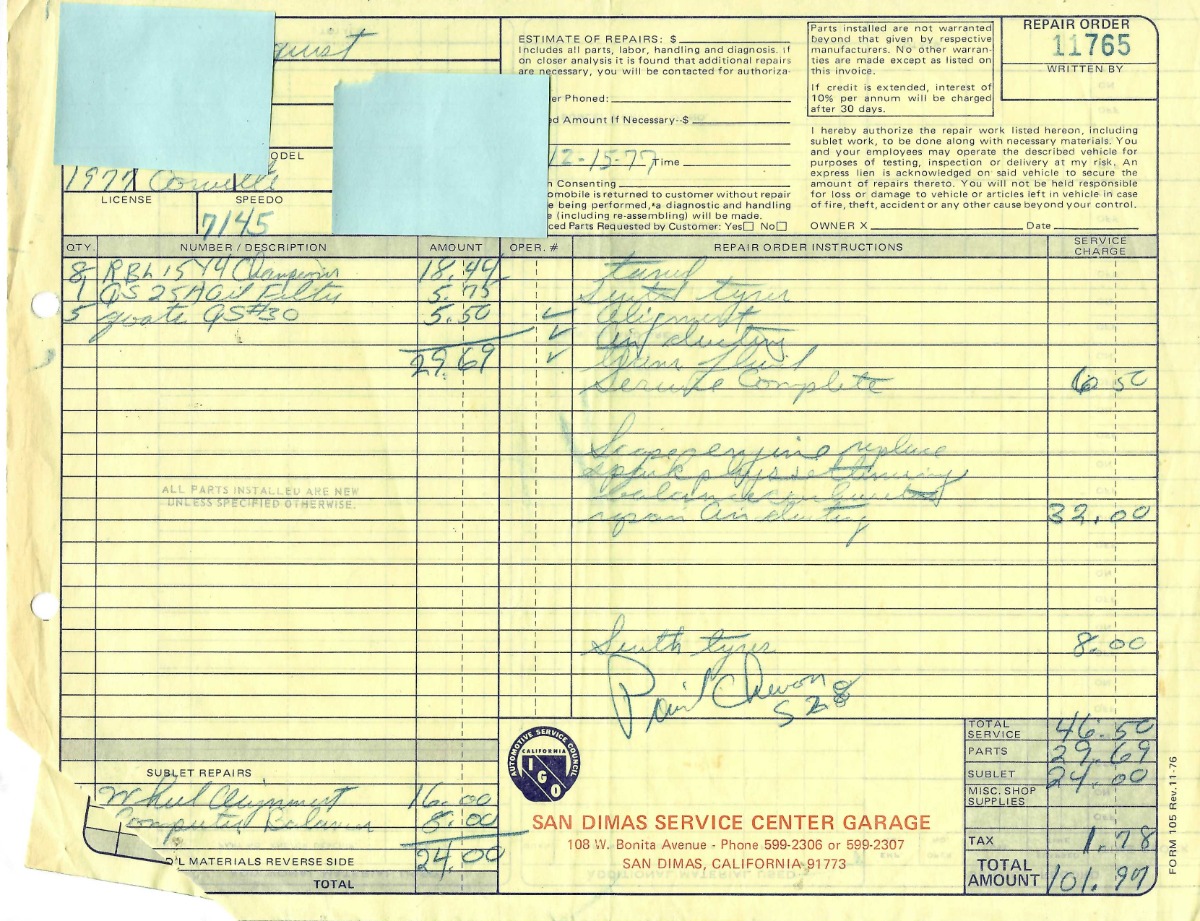 ESTIMATE OF REPAIRS: $
Includes all parts, labor, handling and diagnosis. If
on closer analysis it is found that additional repairs
are necessary, you will be contacted for authoriza-
er Phoned:
ed Amount If Necessary--$
12-15-77 Time
n Consenting
omobile is returned to customer without repair
e being performed, *a diagnostic and handling
e (including re-assembling) will be made.
ced Parts Requested by Customer: Yes□ No□
Parts installed are not warranted
beyond that given by respective
manufacturers. No other warran-
ties are made except as listed on
this invoice.
If credit is extended, interest of
10% per annum will be charged
after 30 days.
REPAIR ORDER
11765
WRITTEN BY
I hereby authorize the repair work listed hereon, including
sublet work, to be done along with necessary materials. You
and your employees may operate the described vehicle for
purposes of testing, inspection or delivery at my risk. An
express lien is acknowledged on said vehicle to secure the
amount of repairs thereto. You will not be held responsible
for loss or damage to vehicle or articles left in vehicle in case
of fire, theft, accident or any other cause beyond your control.
OWNER X Date
ODEL
1977 Corvette
LICENSE SPEEDO
7145
QTY. NUMBER / DESCRIPTION AMOUNT OPER. # REPAIR ORDER INSTRUCTIONS SERVICE CHARGE
8 RBL 15Y4 Champion 18.44
1 QS 25A Oil Filter 5.75 tyres
5 QS #30 5.50 ✓ Alignment
✓ Air ducting
29.69 ✓ Trans fluid
Service Complete 6.50
Scope engine replace
spark plugs set timing
balance
repair Air ducting 32.00
ALL PARTS INSTALLED ARE NEW
UNLESS SPECIFIED OTHERWISE.
Switch tyres 8.00
528
TOTAL SERVICE 46.50
PARTS 29.69
SUBLET 24.00
MISC. SHOP SUPPLIES
TAX 1.78
TOTAL AMOUNT 101.97
SUBLET REPAIRS
Wheel Alignment 16.00
Computer Balance 8.00
D'L MATERIALS REVERSE SIDE 24.00
TOTAL
AUTOMOTIVE SERVICE COUNCIL
CALIFORNIA
IGO
SAN DIMAS SERVICE CENTER GARAGE
108 W. Bonita Avenue - Phone 599-2306 or 599-2307
SAN DIMAS, CALIFORNIA 91773
FORM 105 Rev. 11-76